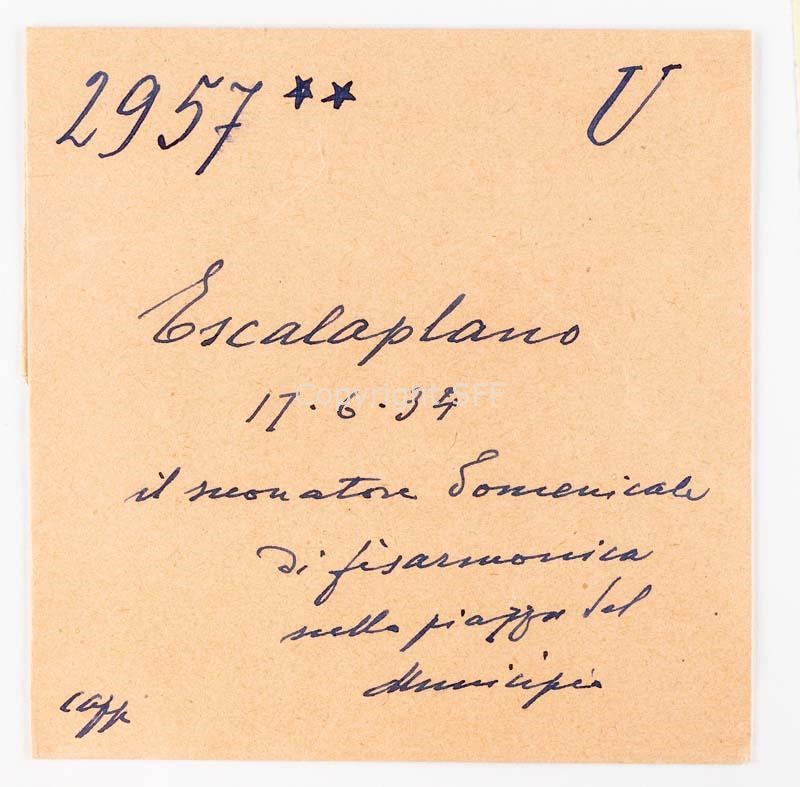 2957 ** U
Escalaplano
Copyright SFF
17.6.34
il suonatore domenicale
di fisarmonica
nella piazza del
Municipio